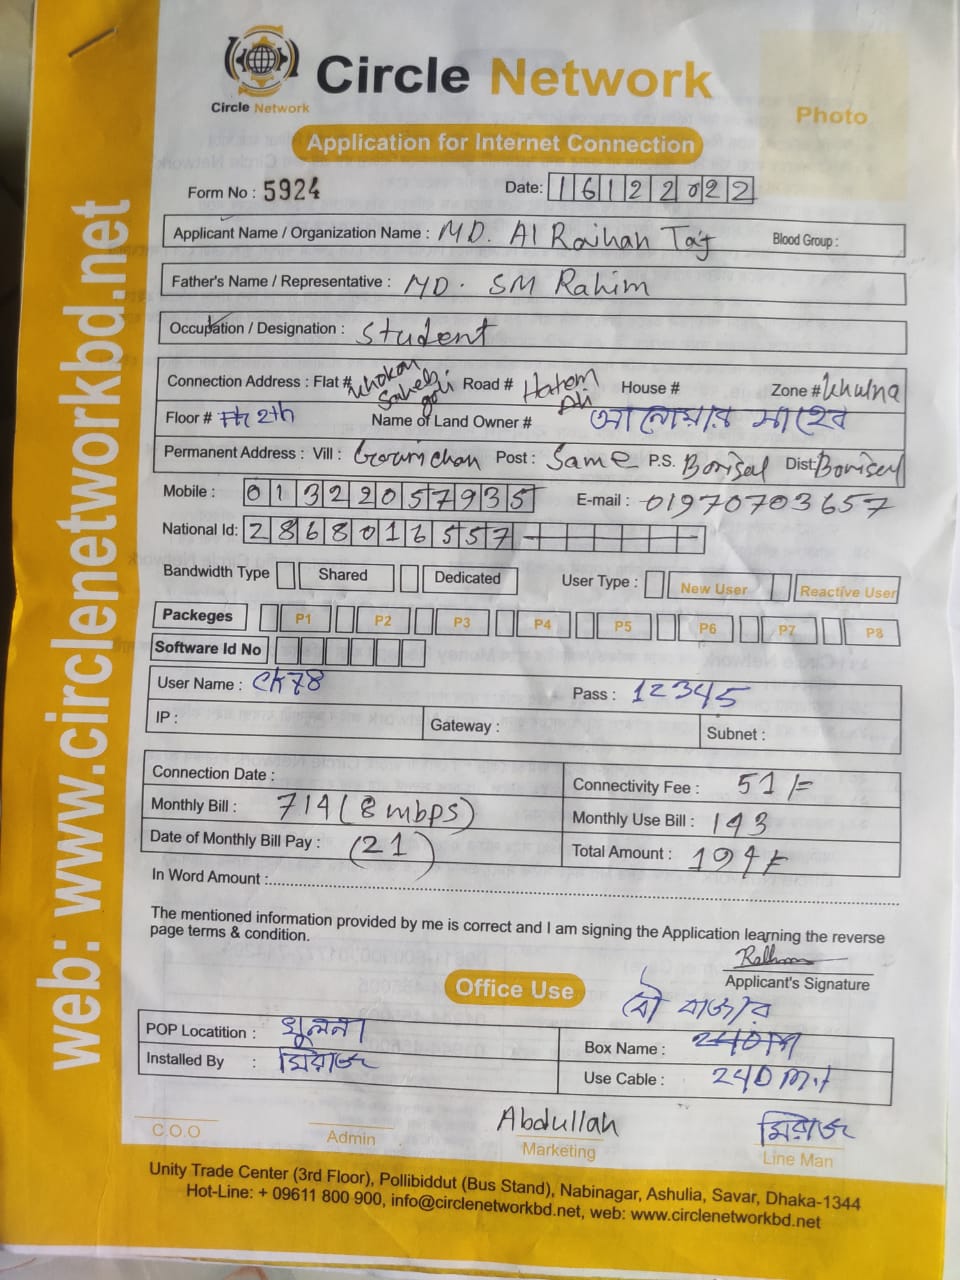 Circle Network
Circle Network
Photo
Application for Internet Connection
Form No : 5924
Date: 16122022
Applicant Name / Organization Name : MD. Al Raihan Taj Blood Group :
Father's Name / Representative : MD. SM Rahim
Occupation / Designation : Student
Connection Address : Flat # Khokan Saheb Road # Hatem Ali House # Zone # Khulna
Floor # 2th Name of Land Owner # আনোয়ার সাহেব
Permanent Address : Vill : Gourichan Post : Same P.S. Borisal Dist: Borisal
Mobile : 01322057935 E-mail : 01970703657
National Id: 2868016557
Bandwidth Type Shared Dedicated User Type : New User Reactive User
Packeges P1 P2 P3 P4 P5 P6 P7 P8
Software Id No
User Name : CK78 Pass : 12345
IP : Gateway : Subnet :
Connection Date : Connectivity Fee : 51/=
Monthly Bill : 714 (8 mbps) Monthly Use Bill : 143
Date of Monthly Bill Pay : (21) Total Amount : 194/=
In Word Amount :
The mentioned information provided by me is correct and I am signing the Application learning the reverse
page terms & condition.
Applicant's Signature
Office Use
বৌ বাজার
POP Locatition : খুলনা Box Name :
Installed By : মিরাজ Use Cable : 240 m.t
C.O.O Admin Abdullah Marketing মিরাজ Line Man
Unity Trade Center (3rd Floor), Pollibiddut (Bus Stand), Nabinagar, Ashulia, Savar, Dhaka-1344
Hot-Line: + 09611 800 900, info@circlenetworkbd.net, web: www.circlenetworkbd.net
web: www.circlenetworkbd.net